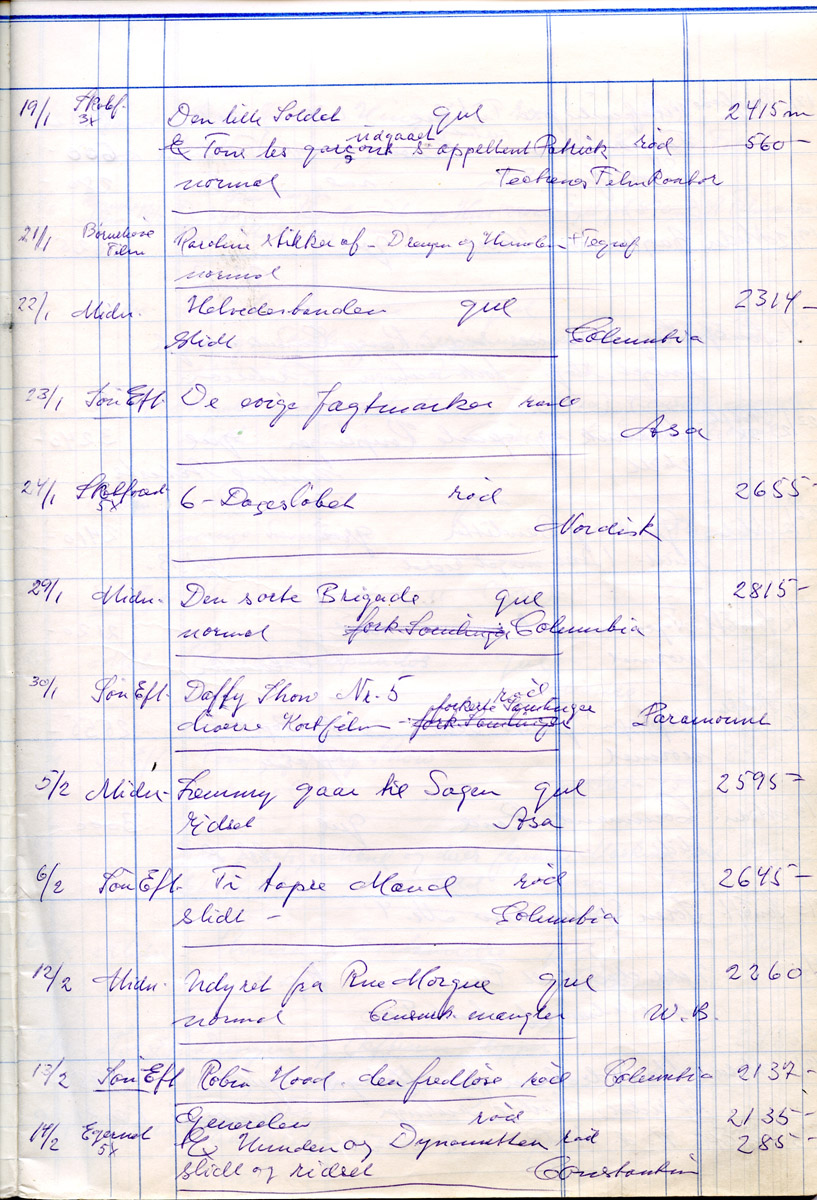 19/1 Den lille Soldat gul 2415 m
3x udgaaet
& Tous les garçons s'appellent Patrick röd 560 —
normal
21/1 Film Karoline stikker af — Drengen og
normal
22/1 Midn. Helvedesbanden gul 2314 —
slidt Columbia
23/1 Søn Eft. De evige Jagtmarker
Asa
24/1 6-Dagesløbet röd 2655 —
5x
Nordisk
29/1 Midn. Den sorte Brigade gul 2815 —
normal Columbia
30/1 Søn Eft. Daffy Show Nr. 5 röd
forkerte Samlinger
diverse Kortfilm — fork. Samlinger Paramount
5/2 Midn. Lemmy gaar til Sagen gul 2595 —
ridset Asa
6/2 Søn Eft. Ti tapre Mænd röd 2645 —
slidt — Columbia
12/2 Midn. Udyret fra Rue Morgue gul 2260
normal mangler W.B.
13/2 Søn Eft Robin Hood den fredløse röd Columbia 2137 —
Generalen röd 2135 —
14/2 & Hunden og Dynamitten röd 285 —
5x
slidt og ridset Constantin